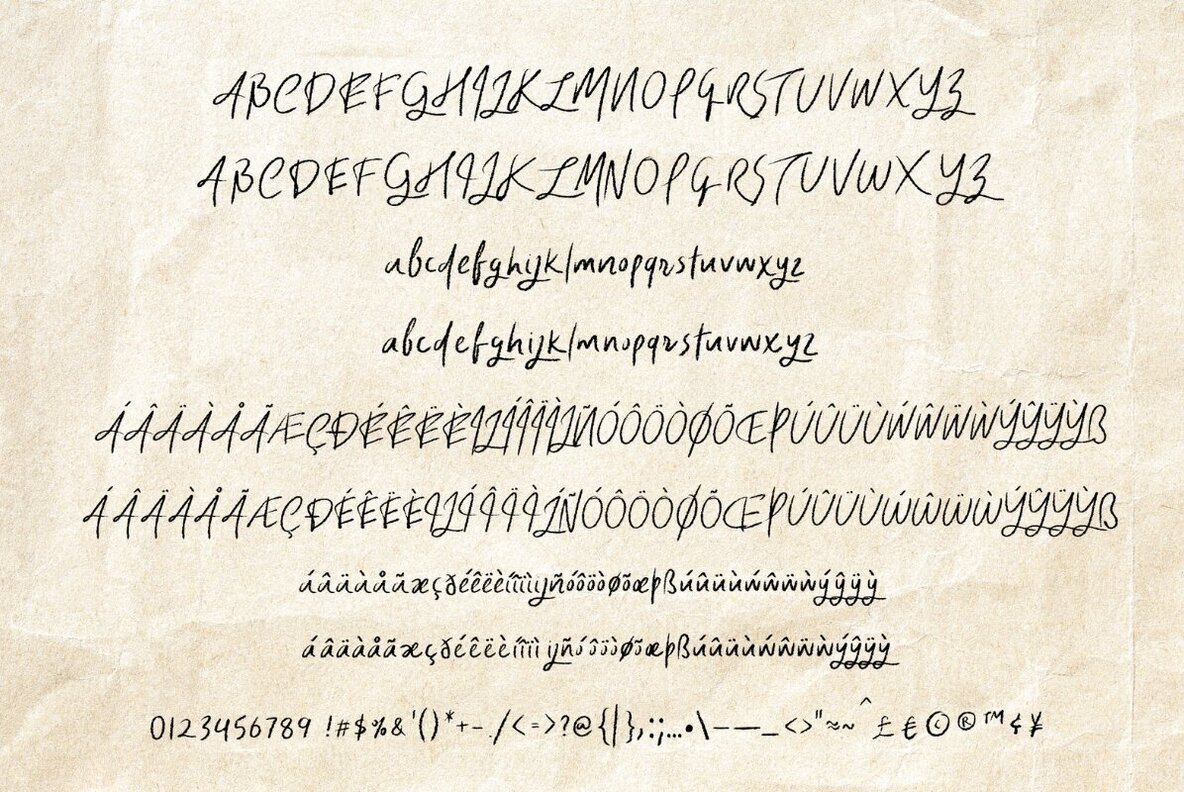 ABCDEFGHIJKLMNOPQRSTUVWXYZ
ABCDEFGHIJKLMNOPQRSTUVWXYZ
abcdefghijklmnopqrstuvwxyz
abcdefghijklmnopqrstuvwxyz
ÁÂÄÀÅÃÆÇÐÉÊËÈIJÍÎÏÌJ́ÑÓÔÖÒØÕŒÞÚÛÜÙẂŴẄẀÝŶŸỲẞ
ÁÂÄÀÅÃÆÇÐÉÊËÈIJÍÎÏÌJ́ÑÓÔÖÒØÕŒÞÚÛÜÙẂŴẄẀÝŶŸỲẞ
áâäàåãæçðéêëèíîïìijñóôöòøõœþßúûüùẃŵẅẁýŷÿỳ
áâäàåãæçðéêëèíîïìijñóôöòøõœþßúûüùẃŵẅẁýŷÿỳ
0123456789 !#$%&'()*+-./<=>?@{|},:;…•\–—_<>"≈~^£€©®™¢¥